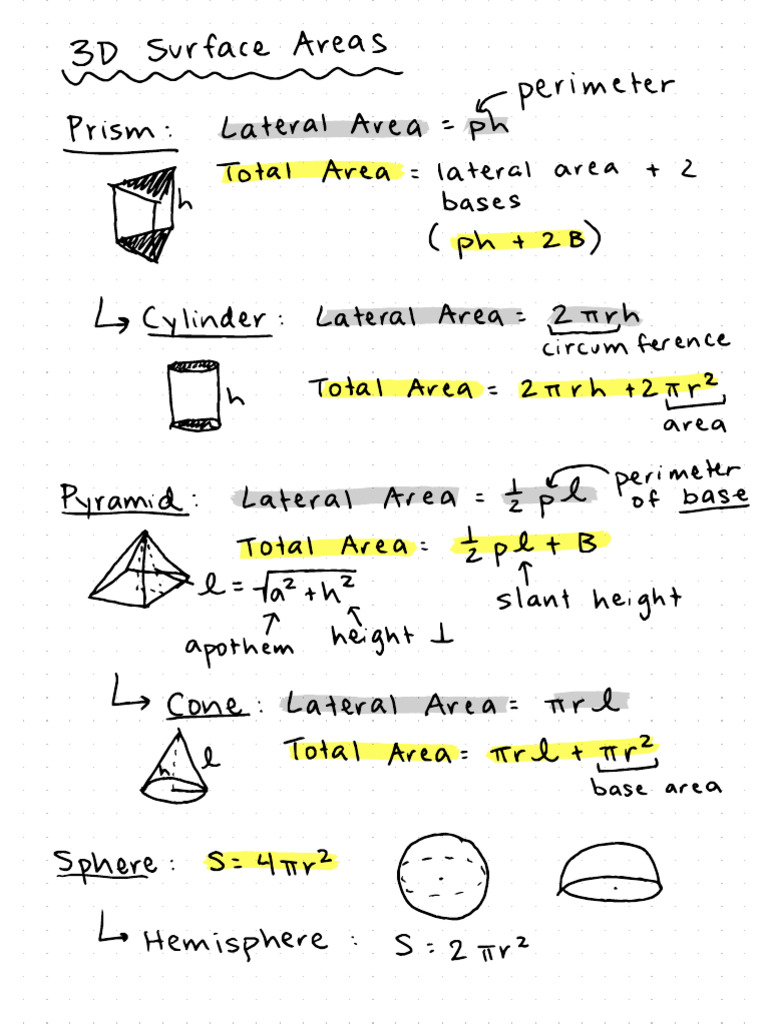 3D Surface Areas
perimeter
Prism: Lateral Area = ph
Total Area = lateral area + 2
bases
h
(ph + 2B)
↳ Cylinder: Lateral Area = 2πrh
circumference
h
Total Area = 2πrh + 2πr²
area
Pyramid: Lateral Area = ½pl
perimeter
of base
Total Area = ½pl + B
l = √(a² + h²)
slant height
apothem
height ⊥
↳ Cone: Lateral Area = πrl
h
l
Total Area = πrl + πr²
base area
Sphere: S = 4πr²
↳ Hemisphere: S = 2πr²